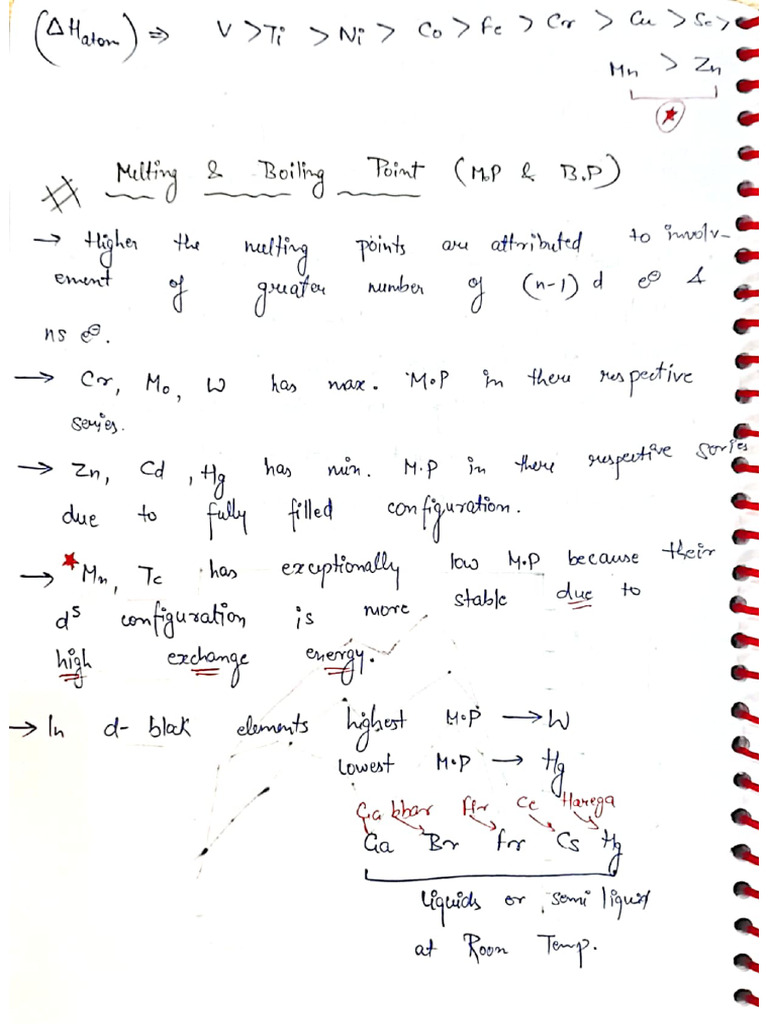 (ΔHatom) ⇒ V > Ti > Ni > Co > Fe > Cr > Cu > Sc >
Mn > Zn
# Melting & Boiling Point (M.P & B.P)
→ Higher the melting points are attributed to involv-
ement of greater number of (n-1) d e⊖ &
ns e⊖.
→ Cr, Mo, W has max. M.P in there respective
series.
→ Zn, Cd, Hg has min. M.P in there respective series
due to fully filled configuration.
→ *Mn, Tc has exceptionally low M.P because their
d⁵ configuration is more stable due to
high exchange energy.
→ In d- block elements highest M.P → W
lowest M.P → Hg
Ga bbar Fir Ce Harega
Ga Br Fr Cs Hg
liquids or semi liquid
at Room Temp.